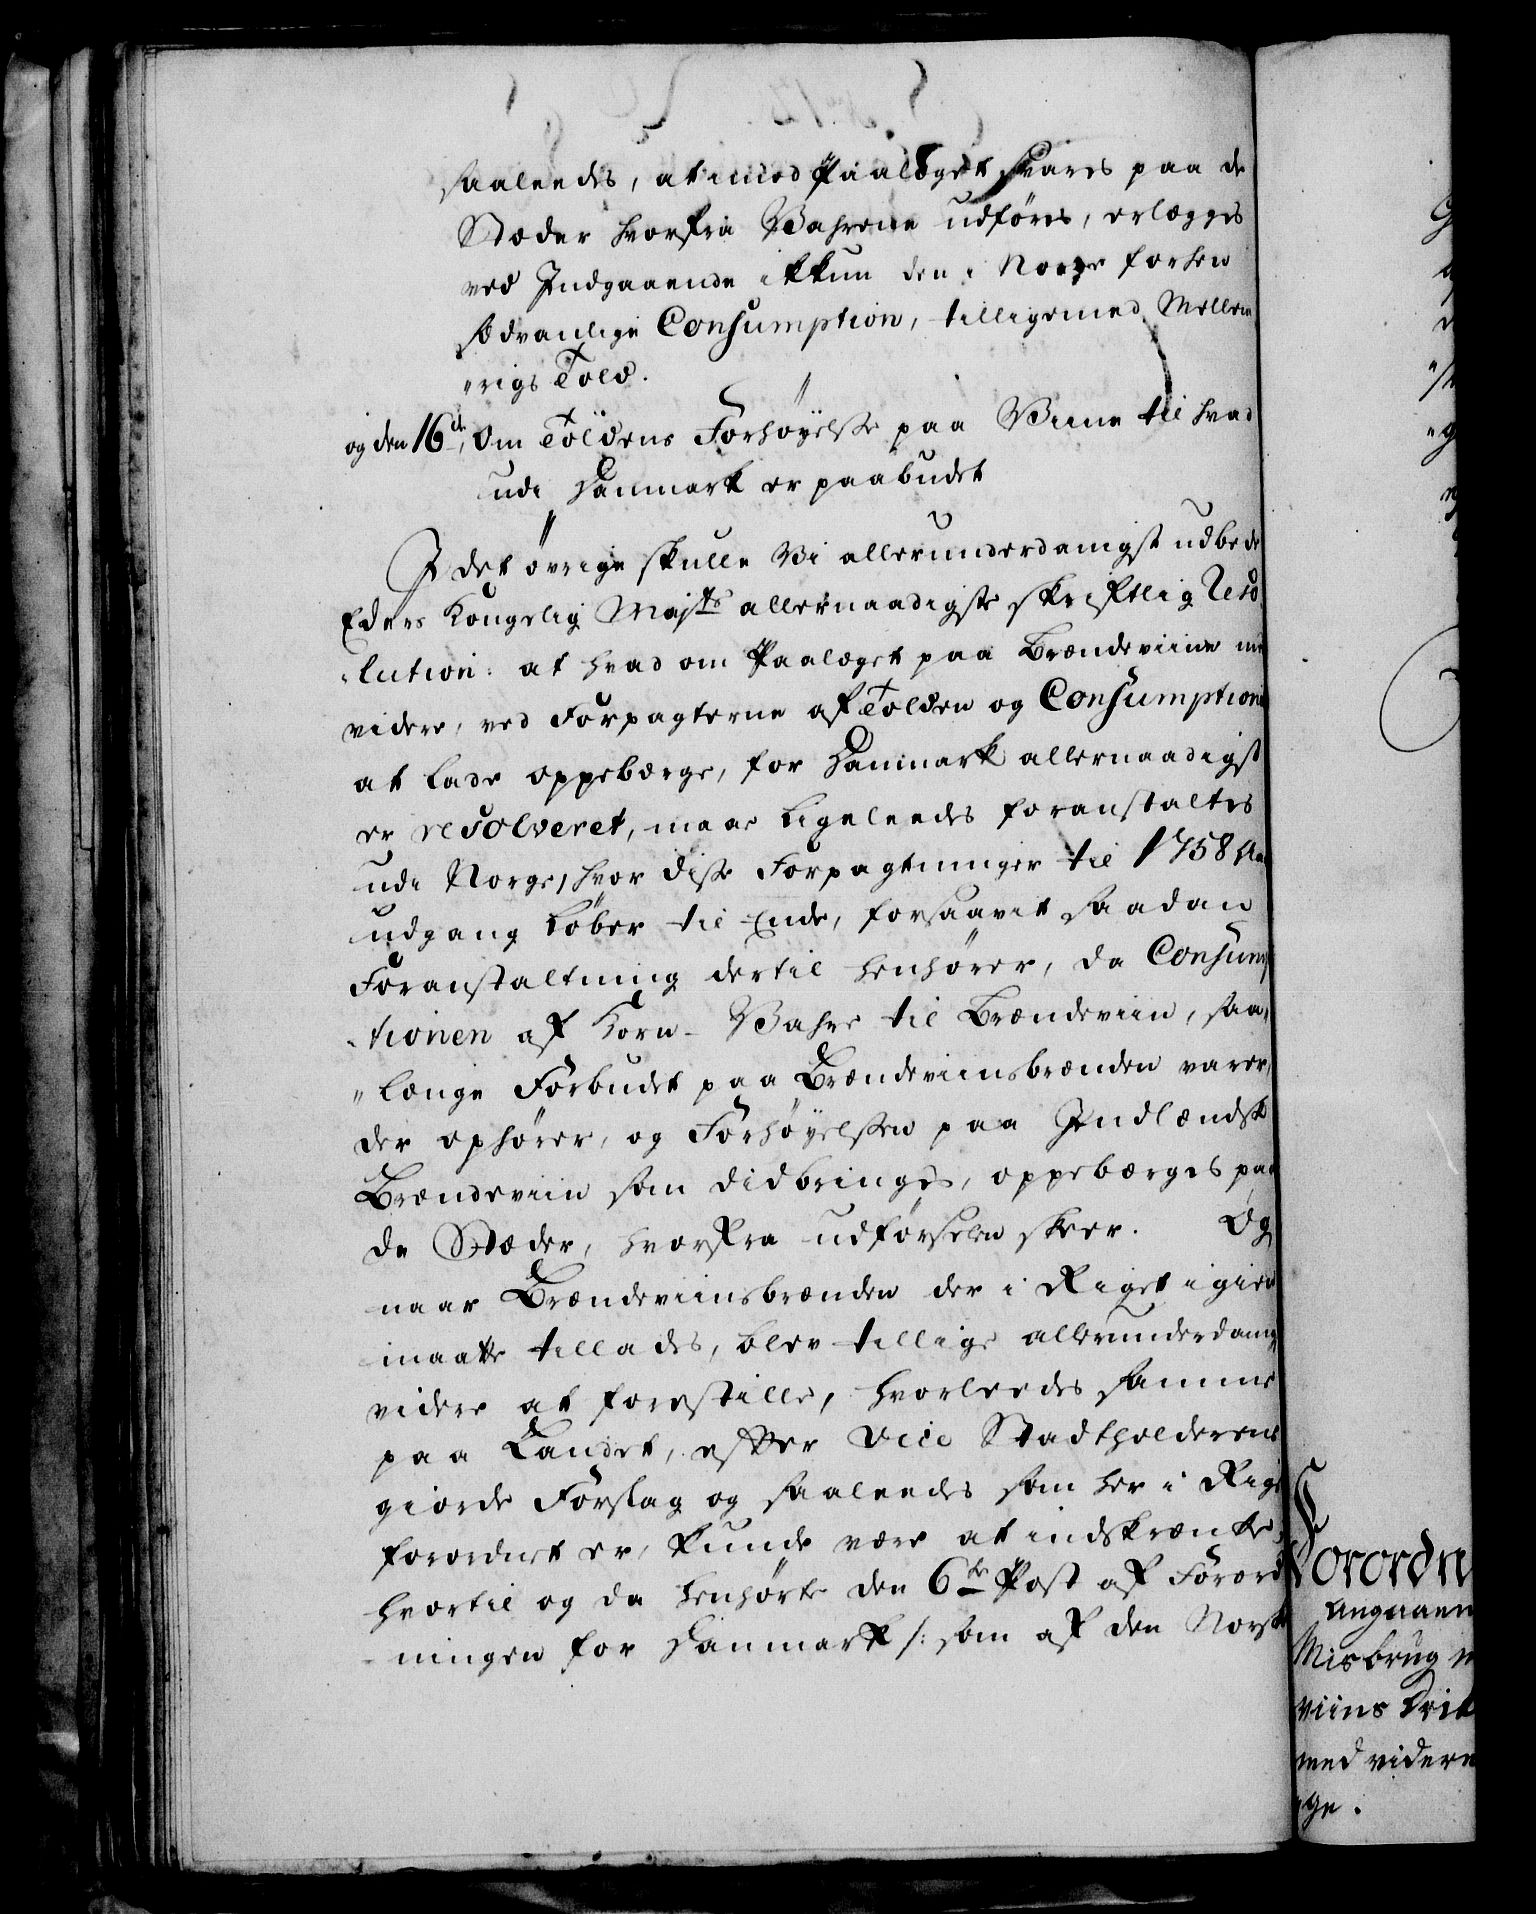 saaleedes, at imod Paalæget svares paa de
Stæder hvorfra Vahrene udføres, erlægges
ved Indgaaende ikkun den i Norge forhen
sædvanlige Consumption, tilligemed Mellem
"rigs Told.
og den 16de, Om Toldens Forhøyelse paa Viine til hvad
udi Danmark er paabudet
I det øvrige skulle Vi allerunderdanigst udbede
Eders Kongelig Maj:ts allernaadigste skriftlig Reso
"lution: at hvad om Paalæget paa Brændeviin med
videre, ved Forpagterne af Tolden og Consumptionen
at lade oppebærge, for Danmark allernaadigst
er resolveret, maae ligeleedes foranstaltes
udi Norge, hvor disse Forpagtninger til 1758 Aars
udgang løber til Ende, forsaavit saadan
Foranstaltning dertil henhører, da Consump
"tionen af Korn-Vahre til Brændeviin, saa"
"længe Forbudet paa Brændeviinsbrænden varer,
der ophører, og Forhøyelsen paa Indlændsk
Brændeviin som didbringes, oppebærges paa
de Stæder, hvorfra udførselen skeer. Og
naar Brændeviinsbrænden der i Riget igien
maatte tillades, blev tillige allerunderdanigst
videre at forestille, hvorleedes samme
paa Landet, efter Vice Stadtholderens
giorde Forslag og saaleedes som her i Riget
forordnet er, kunde være at indskrænke,
hvortil og da henhørte den 6te Post af Forord
"ningen for Danmark /: som af den Norske
Forordn
Angaaen
Misbrug
viins Drik
med videre
ge.